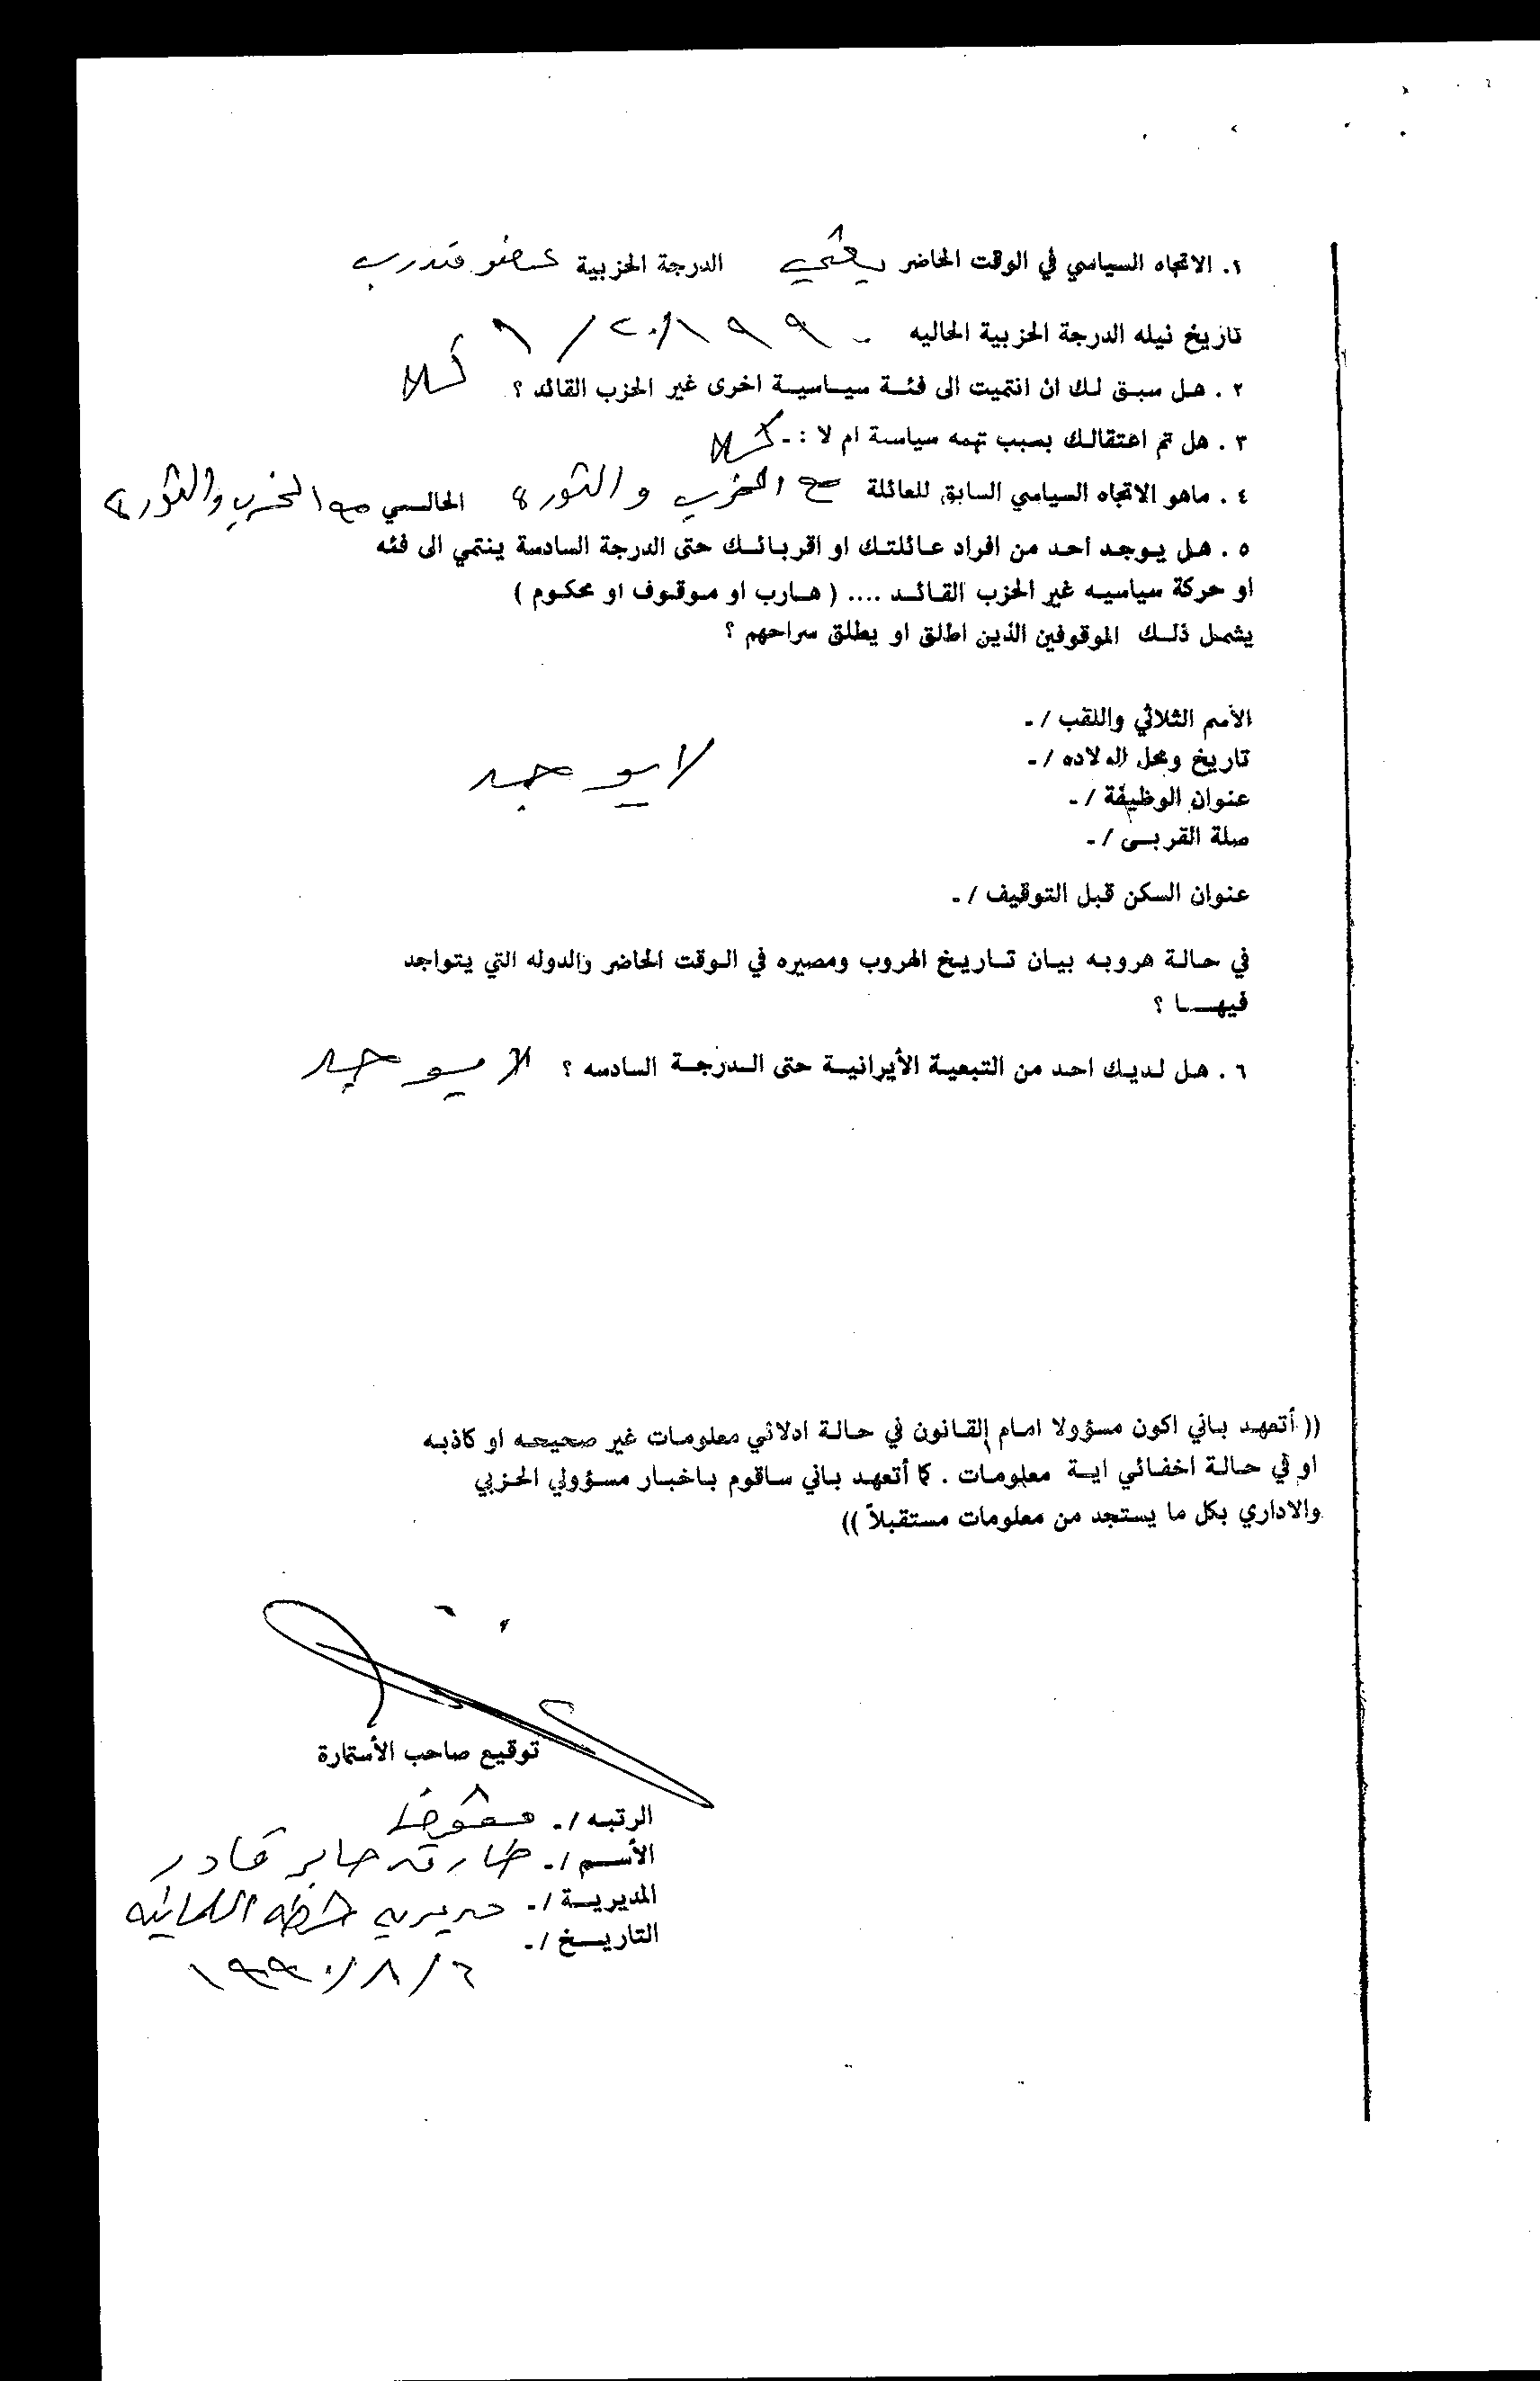 ١. الاتجاه السياسي في الوقت الحاضر بعثي الدرجة الحزبية عضو متدرب
تاريخ نيله الدرجة الحزبية الحاليه
٢. هل سبق لك ان انتميت الى فئة سياسية اخرى غير الحزب القائد ؟ كلا
٣. هل تم اعتقالك بسبب تهمه سياسة ام لا :ـ كلا
٤. ماهو الاتجاه السياسي السابق للعائلة مع الحزب والثورة الحالي مع الحزب والثورة
٥. هل يوجد احد من افراد عائلتك او اقربائك حتى الدرجة السادسة ينتمي الى فئه
او حركة سياسيه غير الحزب القائد .... ( هارب او موقوف او محكوم )
يشمل ذلك الموقوفين الذين اطلق او يطلق سراحهم ؟
الأسم الثلاثي واللقب /ـ
تاريخ ومحل الولاده /ـ
لا يوجد
عنوان الوظيفة /ـ
صلة القربى /ـ
عنوان السكن قبل التوقيف /ـ
في حالة هروبه بيان تاريخ الهروب ومصيره في الوقت الحاضر والدوله التي يتواجد
فيها ؟
٦. هل لديك احد من التبعية الأيرانية حتى الدرجة السادسه ؟ لا يوجد
(( أتعهد باني اكون مسؤولا امام القانون في حالة ادلائي معلومات غير صحيحه او كاذبه
او في حالة اخفائي اية معلومات . كما أتعهد باني ساقوم باخبار مسؤولي الحزبي
والاداري بكل ما يستجد من معلومات مستقبلاً ))
توقيع صاحب الأستمارة
الرتبه /ـ مفوض
الأسم /ـ طارق صابر قادر
المديرية /ـ مديرية شرطة السليمانية
التاريخ /ـ
٦/٨/١٩٩٠